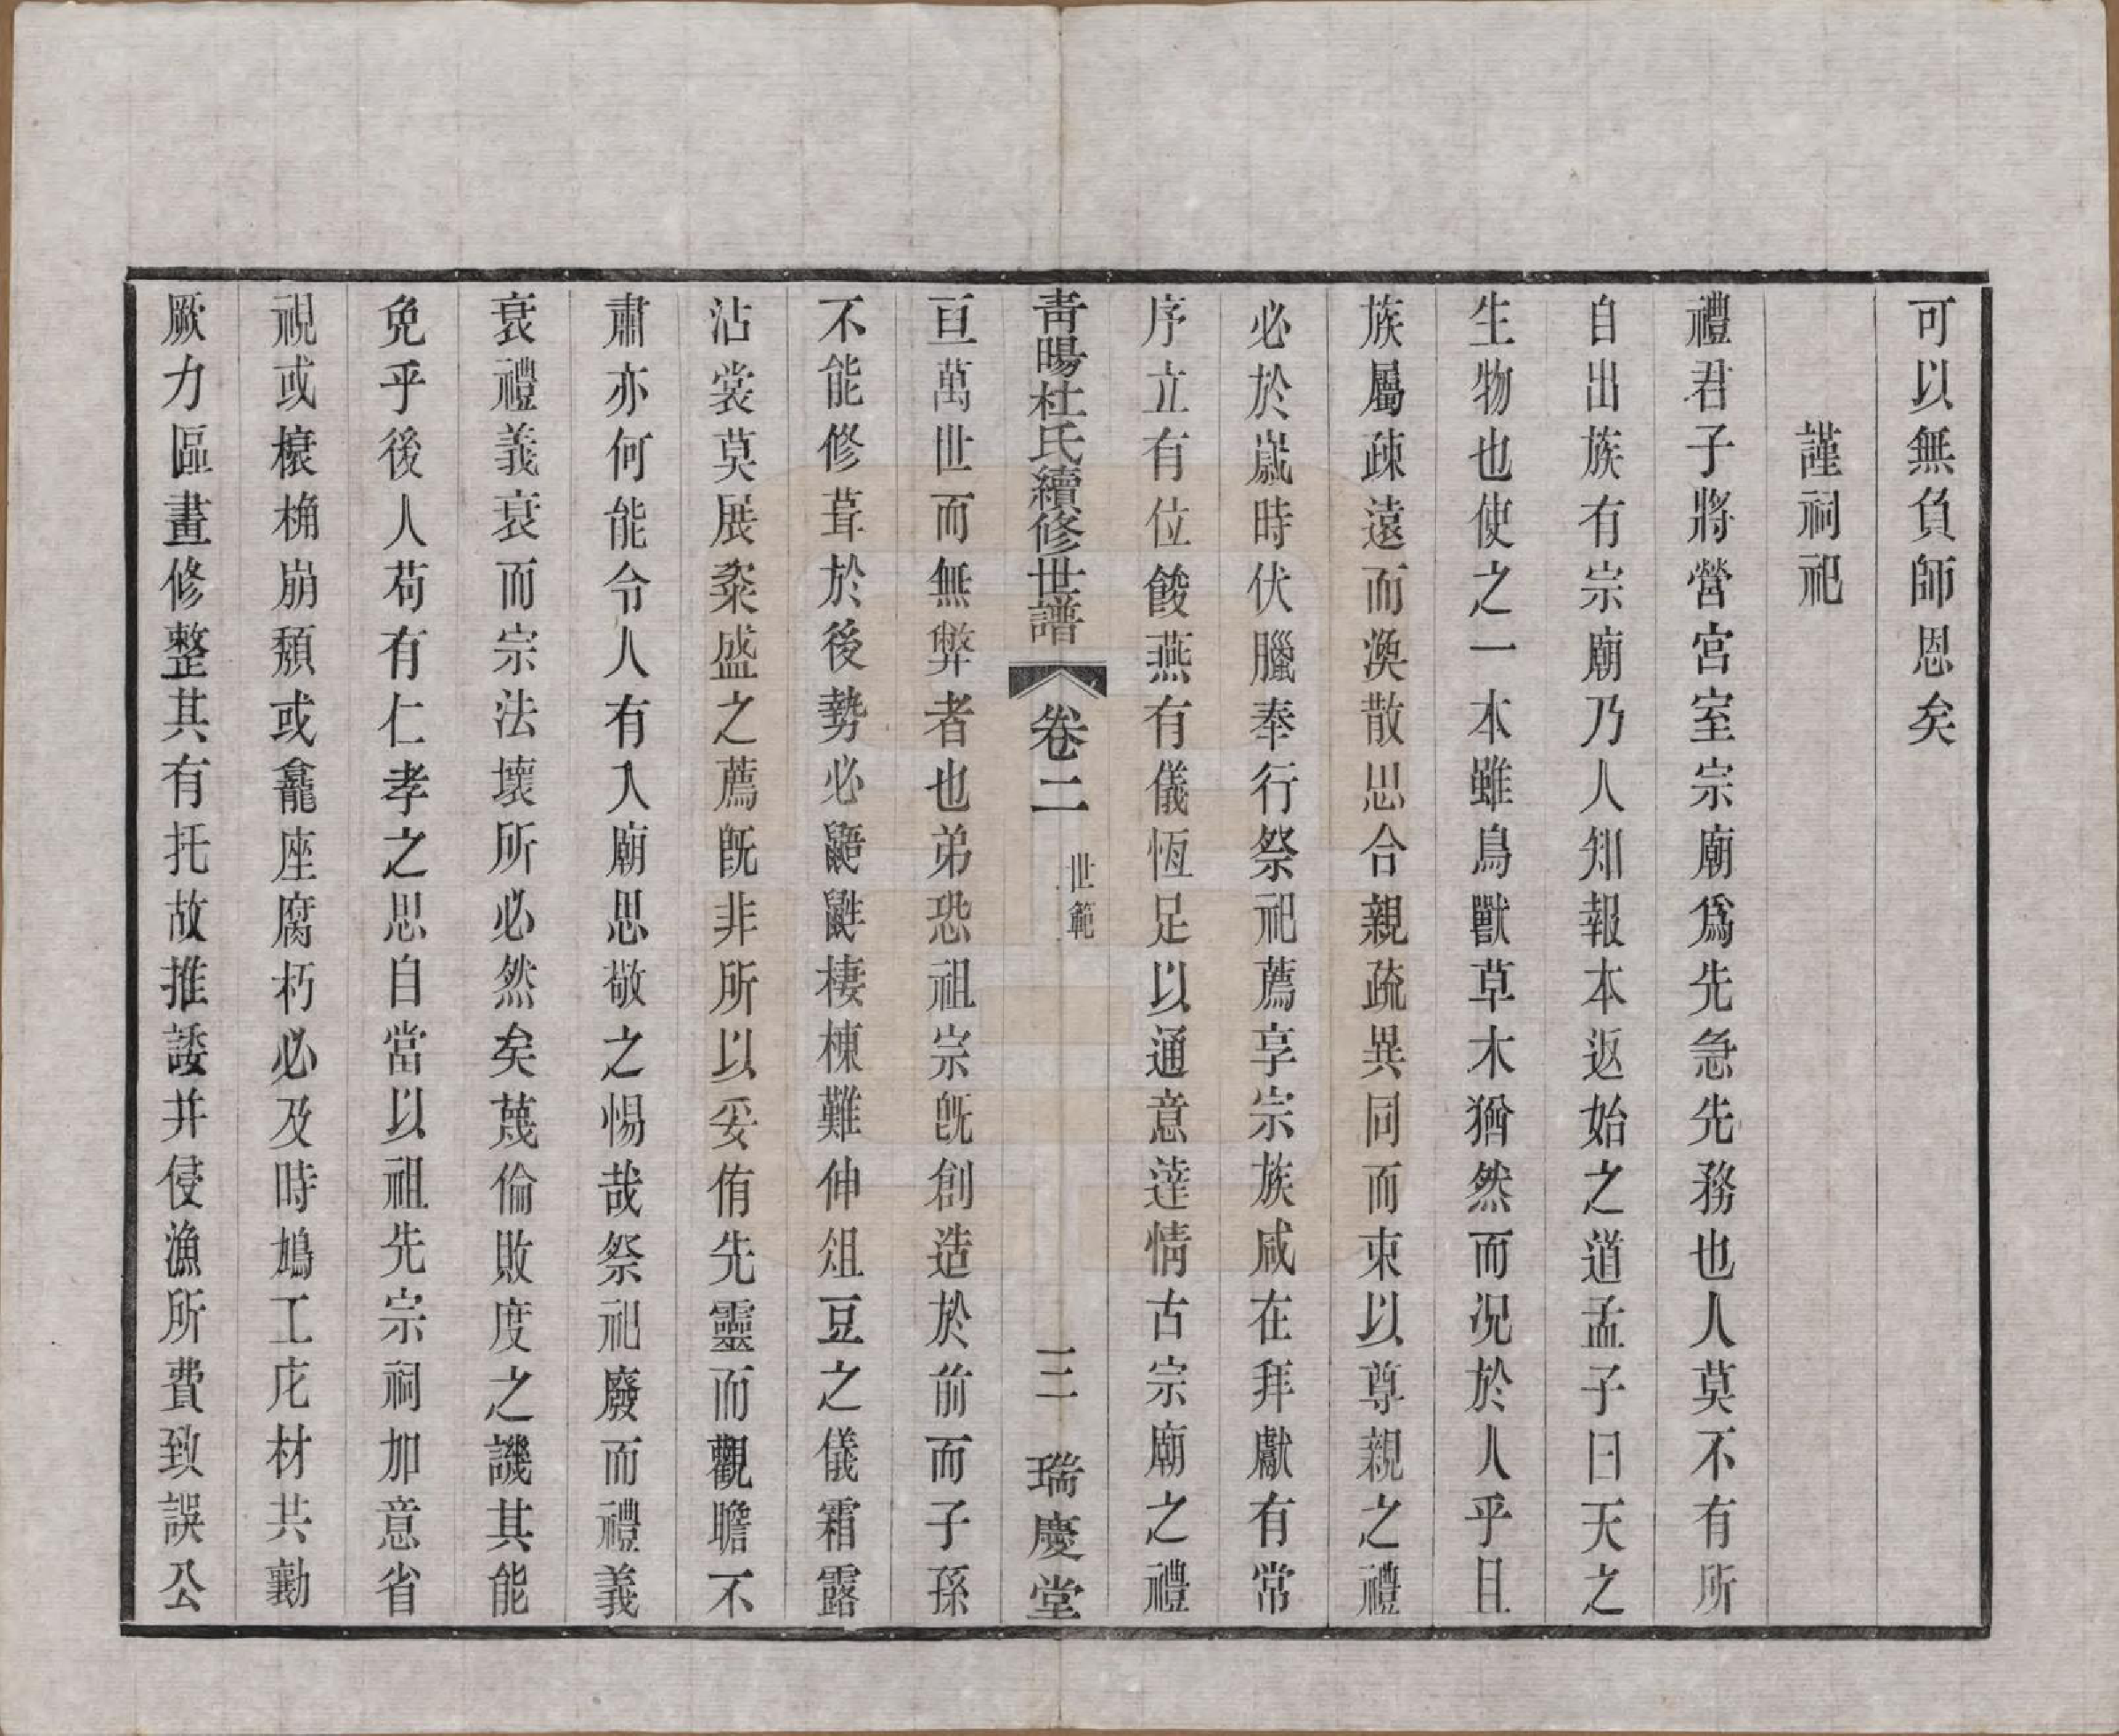 可以無負師恩矣
謹祠祀
禮君子將營宮室宗廟爲先急先務也人莫不有所
自出族有宗廟乃人知報本返始之道孟子曰天之
生物也使之一本雖鳥獸草木猶然而況於人乎且
族屬疎遠而渙散思合親疏異同而束以尊親之禮
必於歲時伏臘奉行祭祀薦享宗族咸在拜獻有常
序立有位餕燕有儀恆足以通意達情古宗廟之禮
青暘杜氏續修世譜 卷二 世範 三 瑞慶堂
亘萬世而無弊者也弟恐祖宗旣創造於前而子孫
不能修葺於後勢必鼯鼪棲棟難伸俎豆之儀霜露
沾裳莫展粢盛之薦旣非所以妥侑先靈而觀瞻不
肅亦何能令人有入廟思敬之惕哉祭祀廢而禮義
衰禮義衰而宗法壞所必然矣蔑倫敗度之譏其能
免乎後人苟有仁孝之思自當以祖先宗祠加意省
視或榱桷崩頹或龕座腐朽必及時鳩工庀材共勷
厥力區畫修整其有托故推諉并侵漁所費致誤公